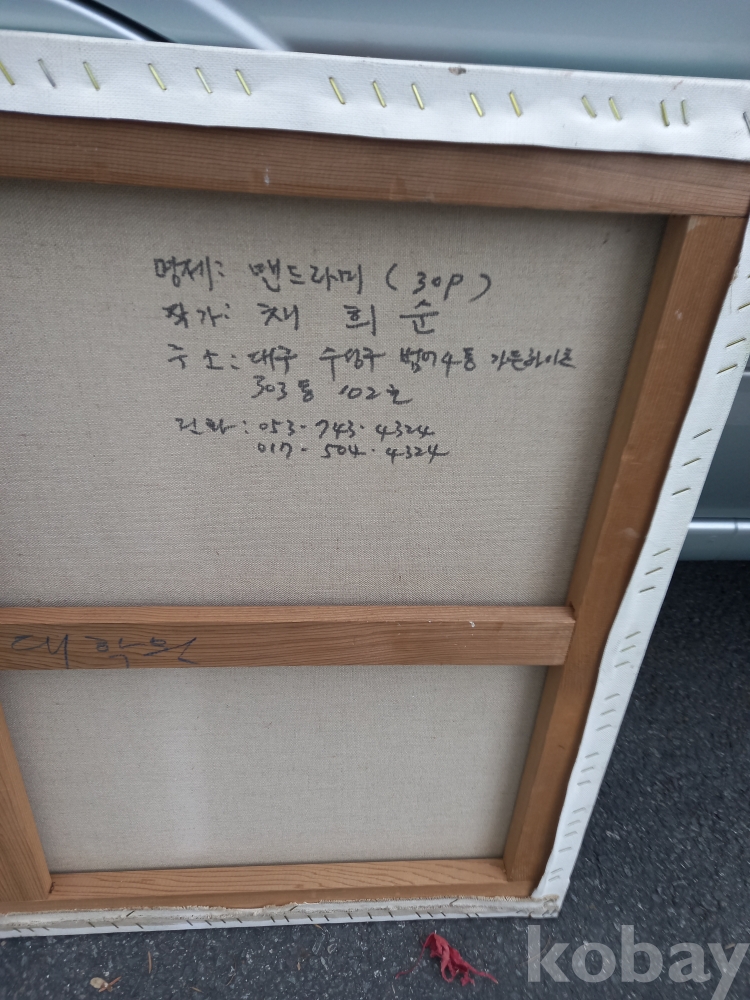 명제: 맨드라미 (30P)
작가: 채 희 순
주소: 대구 수성구 범어4동 가든하이츠
303동 102호
전화: 053-743-4324
017-504-4324
대학원
kobay